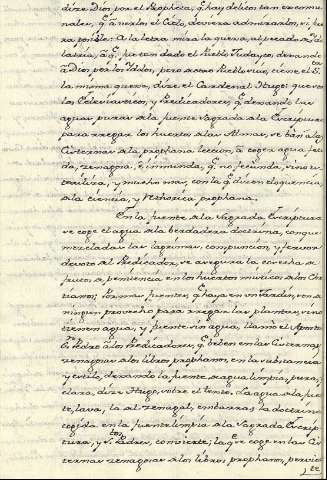 dize Dios por el Propheta, q̃ hay delitos tan excomu-
nales, q̃ a verlos el Cielo, deviera admirarlos, ni hu-
ra por blo. A la letra mira la quexa, al pecado de Ydo-
latria, a q̃ se avia dado el Pueblo Judayco, dexando
a Dios por los Ydolos, pero a este Pueblo viue, tiene el S.r
la misma quexa, dize el Cardenal Hugo: que vnos
los Eclesiasticos, y Predicadores q̃ dexando las
aguas puras de la fuente Sagrada de la Escriptura
para rregar los huertos de las Almas, se van a las
Cisternas de la prophana leccion, a coger agua, feti-
da, zenagosa, è inmunda, q̃ no fecunda, sino es-
teriliza, y mucho mas, con la q̃ dizen eloquencia,
de la ciencia, y Rethorica prophana.
En la fuente de la Sagrada Escriptura
se coge el agua de la berdadera doctrina, con que
mezcladas las lagrimas, compuncion, y fervor
devoto del Predicador, se asegura la cosecha de
frutos de penitencia en los huertos misticos de los Chris-
tianos; Por mas fuentes q̃ haya en un Jardin, son de
ningun provecho para rregar las plantas, si no
tienen agua, y fuentes sin agua, llamò el Apostol
S. Pedro a los Predicadores, q̃ beben en las Cisternas
zenagosas de los libros prophanos, en la substancia
y estilo, dexando la fuente de agua limpia, pura,
clara, dize Hugo, sobre el texto. La agua de la fuen-
te, lava, la del zenagal, embarra; la doctrina
cogida en la fuente limpia de la Sagrada Escrip-
tura, y S.tos Padres, convierte; la q̃ se coge en las Cis-
ternas zenagosas de los libros prophanos, pervier-
te